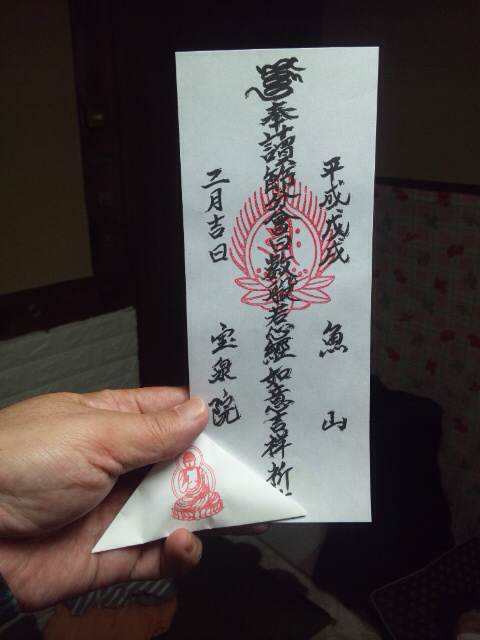 平成戊戌 魚山
奉讀節分會日数般若心經如意吉祥祈
二月吉日 宝泉院